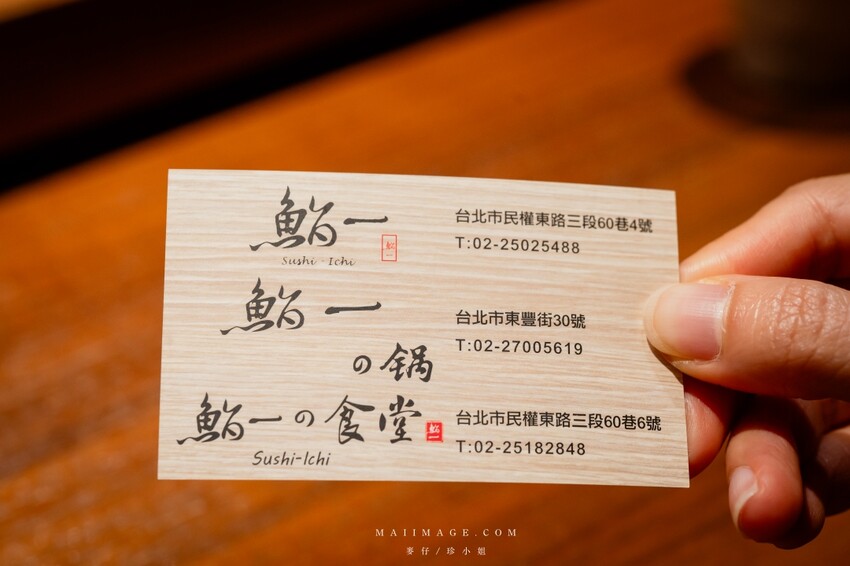 鮨一
Sushi-Ichi
鮨一
台北市民權東路三段60巷4號
T:02-25025488
鮨一
の鍋
台北市東豐街30號
T:02-27005619
鮨一の食堂
鮨一
Sushi-Ichi
台北市民權東路三段60巷6號
T:02-25182848
MAIIMAGE.COM
麥仔/珍小姐